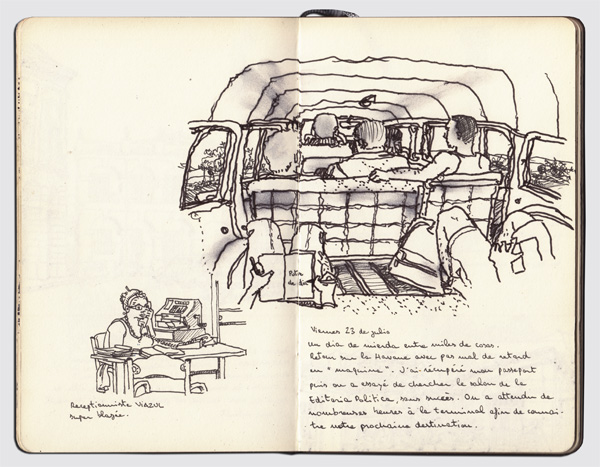 Receptionniste VIAZUL
super blazée.
Viernes 23 de julio
Un dia de mierda entre miles de cosas.
Retour sur la Havane avec pas mal de retard
en "maquina". J'ai récupéré mon passeport
puis on a essayé de chercher le salon de la
Editoria Politica, sans succès. On a attendu de
nombreuses heures à la terminal afin de connai-
tre notre prochaine destination.